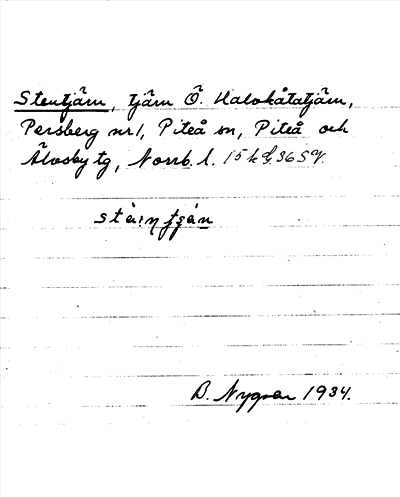 Stentjärn, tjärn Ö. Halvkåtatjärn,
Persberg nr 1, Piteå sn, Piteå och
Älvsby tg, Norrb. l. 15 k d, 36 SV.
B. Nygren 1934.